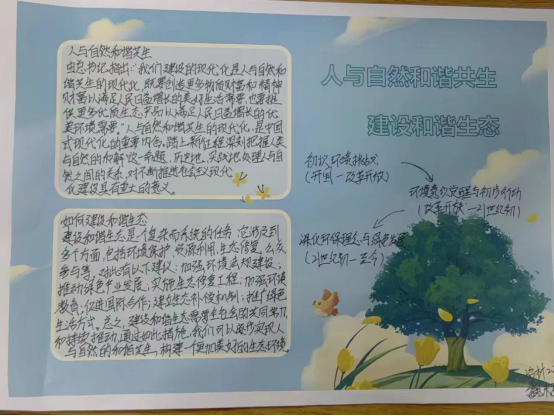 人与自然和谐共生
总书记指出:"我们建设的现代化是人与自然和
谐共生的现代化,既要创造更多物质财富和精神
财富以满足人民日益增长的美好生活需要,也要提
供更多优质生态产品以满足人民日益增长的优
美环境需要。"人与自然和谐共生的现代化,是中国
式现代化的重要内容。踏上新征程深刻把握人类
与自然的和解这一命题,历史地、实践地处理人与自
然之间的关系,对不断推进社会主义现代
化建设具有重大的意义。
如何建设和谐生态
建设和谐生态是一个复杂而系统的任务,它涉及到
多个方面,包括环境保护、资源利用、生态修复、公众
参与等。对此有以下建议:加强环境法规建设;
推动绿色产业发展;实施生态修复工程;加强环境
教育;促进国际合作;建立生态补偿机制;推广绿色
生活方式。总之,建设和谐生态需要全社会的共同努力
和持续推动,通过如此措施,我们可以逐步实现人
与自然的和谐共生,构建一个更加美好的生态环境。
人与自然和谐共生
建设和谐生态
初识环境挑战
(开国—改革开放)
环境意识觉醒与初步行动
(改革开放—21世纪初)
深化环保理念与绿色发展
(21世纪初—至今)